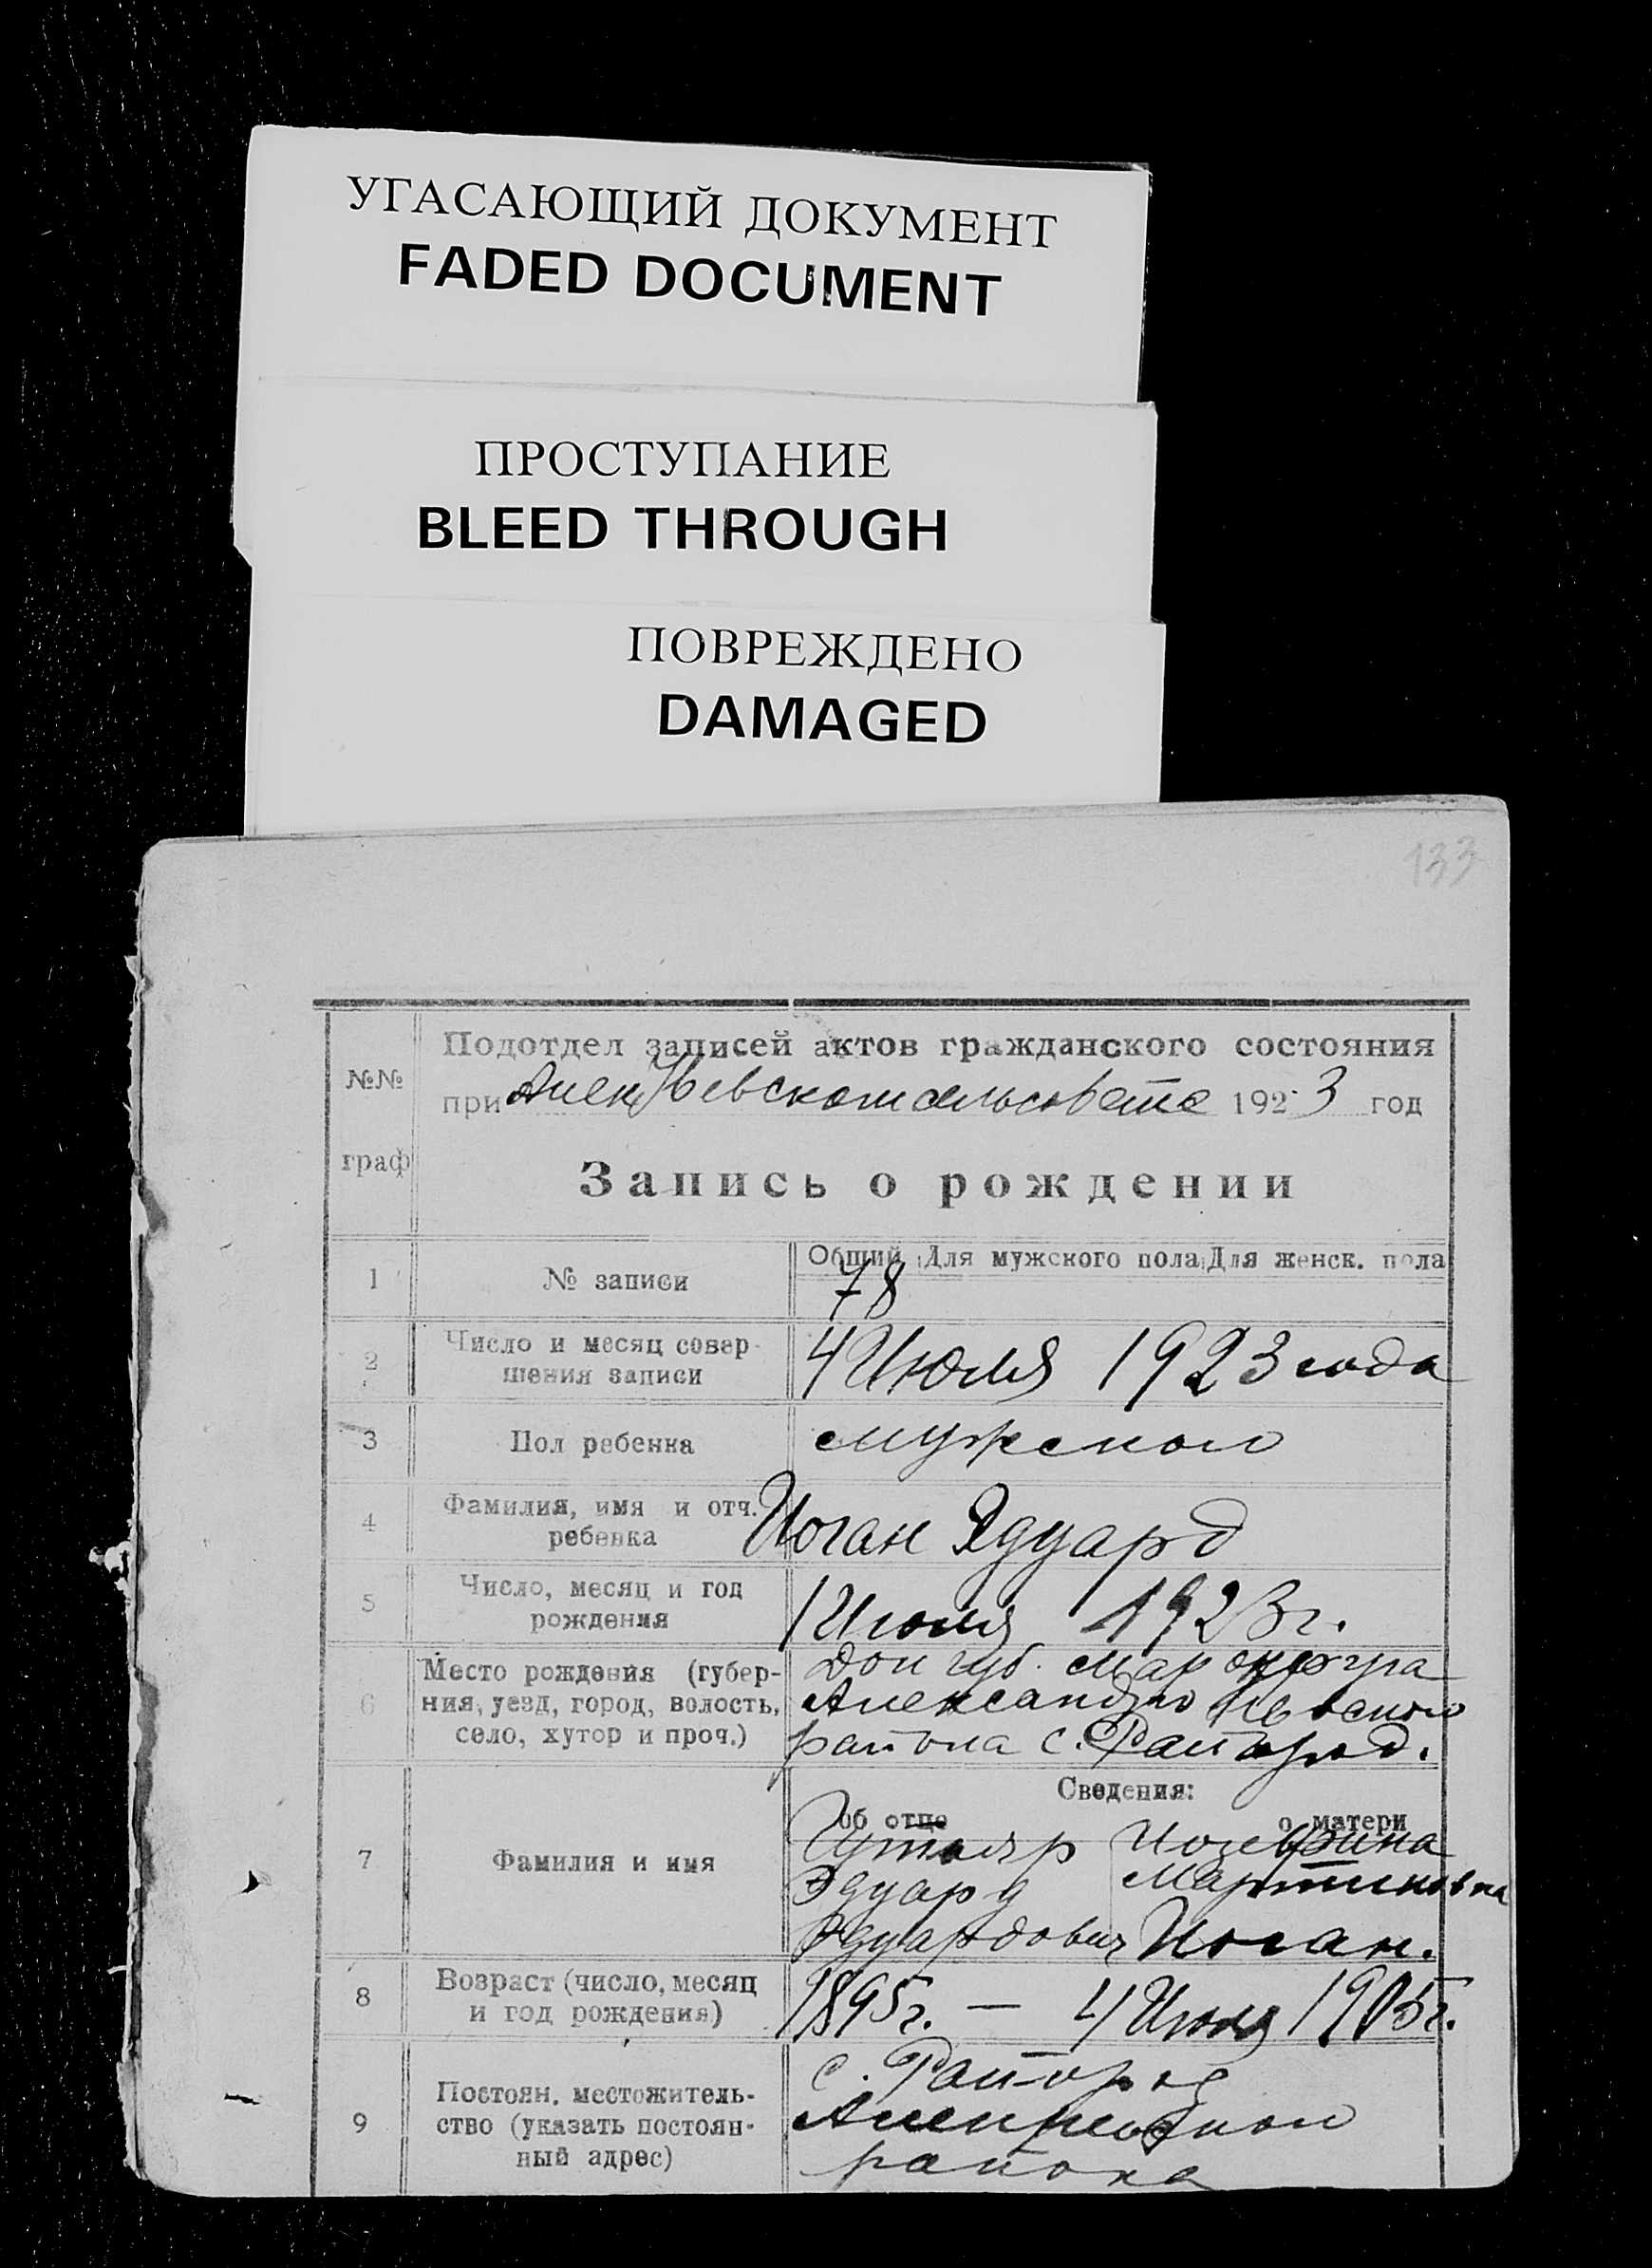 УГАСАЮЩИЙ ДОКУМЕНТ
FADED DOCUMENT
ПРОСТУПАНИЕ
BLEED THROUGH
ПОВРЕЖДЕНО
DAMAGED
133
№№
граф
Подотдел записей актов гражданского состояния
при Алек Невском сельсовете 1923 год
Запись о рождении
1 № записи Общий Для мужского пола Для женск. пола
78
2 Число и месяц совер-
шения записи 4 Июля 1923 года
3 Пол ребенка мужской
4 Фамилия, имя и отч.
ребенка Иоган Эдуард
5 Число, месяц и год
рождения 1 Июля 1923 г.
6 Место рождения (губер-
ния, уезд, город, волость,
село, хутор и проч.)
Дон губ. Мар округа
Александро Невского
района с.
Сведения:
об отце о матери
7 Фамилия и имя
Иозефина
Эдуард Мартиновна
Эдуардович Иоган.
8 Возраст (число, месяц
и год рождения) 1895 г. — 4 Июля 1905 г.
9 Постоян. местожитель-
ство (указать постоян-
ный адрес)
с.
района